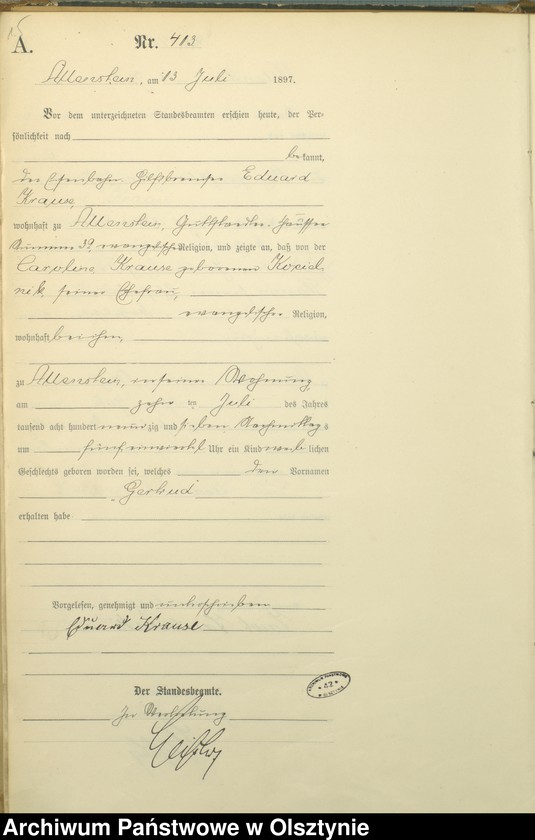 A. Nr. 413
Allenstein, am 13 Juli 1897.
Vor dem unterzeichneten Standesbeamten erschien heute, der Per-
sönlichkeit nach
bekannt,
der Eisenbahn Hilfsbremser Eduard
Krause,
wohnhaft zu Allenstein, Guttstaedter Chaussee
Nummer 39, evangelischer Religion, und zeigte an, daß von der
Caroline Krause geborenen Koziol-
nik, seiner Ehefrau,
evangelischer Religion,
wohnhaft bei ihm,
zu Allenstein, in seiner Wohnung
am zehn ten Juli des Jahres
tausend acht hundert neunzig und sieben Nachmittags
um fünf einviertel Uhr ein Kind weiblichen
Geschlechts geboren worden sei, welches den Vornamen
Gertrud
erhalten habe
Vorgelesen, genehmigt und unterschrieben
Eduard Krause
Der Standesbeamte.
In Vertretung
* 42 *
Archiwum Państwowe w Olsztynie